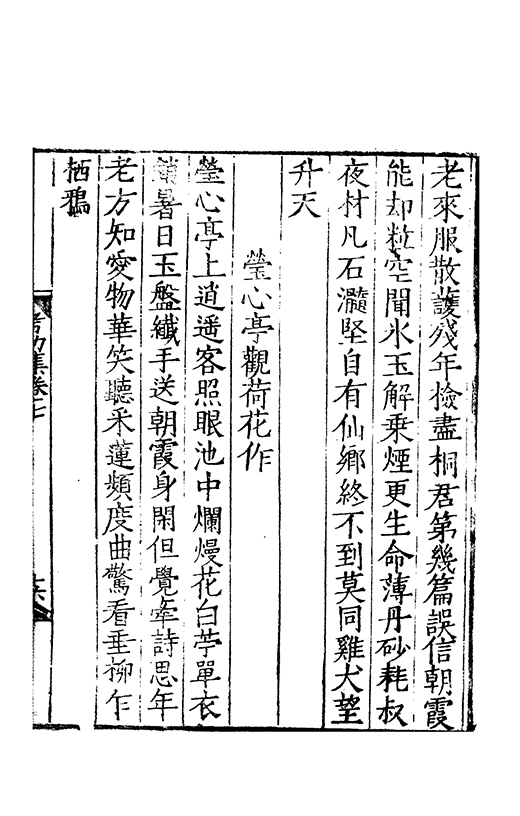 老來服散護殘年撿盡桐君第幾篇誤信朝霞
能却粒空聞水玉解乗煙更生命薄丹砂耗叔
夜材凡石瀡堅自有仙郷終不到莫同雞犬望
升天
瑩心亭觀荷花作
瑩心亭上逍遥客照眼池中爛熳花白苧單衣
暑日玉盤纖手送朝霞身閑但覺牽詩思年
老方知愛物華笑聽釆蓮頻度曲驚看垂柳乍
栖鴉
集卷七